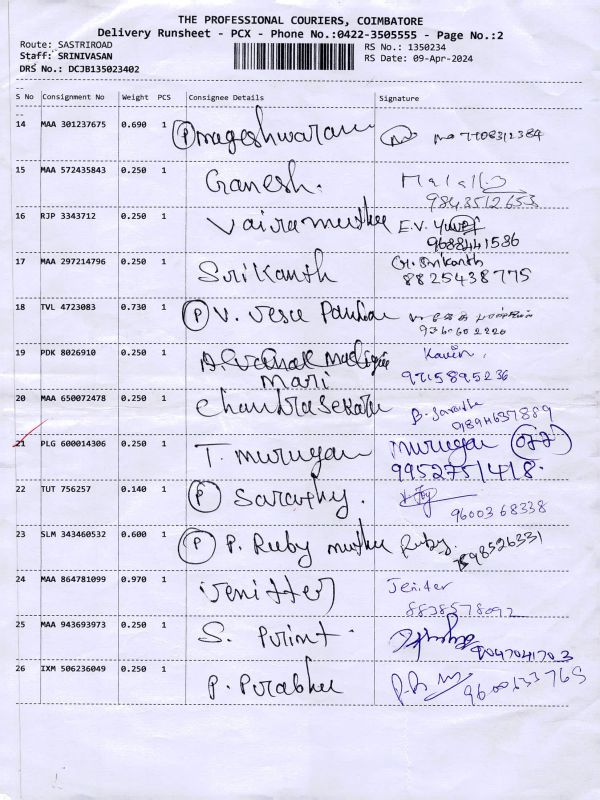 THE PROFESSIONAL COURIERS, COIMBATORE
Delivery Runsheet - PCX - Phone No.:0422-3505555 - Page No.:2
Route: SASTRIROAD RS No.: 1350234
Staff: SRINIVASAN RS Date: 09-Apr-2024
DRS No.: DCJB135023402
S No Consignment No Weight PCS Consignee Details Signature
14 MAA 301237675 0.690 1 P mageshwaram 7708312384
15 MAA 572435843 0.250 1 Ganesh. 9843512653
16 RJP 3343712 0.250 1 Vairamuthu E.V.
9688441536
17 MAA 297214796 0.250 1 Srikanth G. Srikanth
8825438775
18 TVL 4723083 0.730 1 P V.
19 PDK 8026910 0.250 1 Kavin.
mari 9715895236
20 MAA 650072478 0.250 1 Chandrasekaran
9894637889
21 PLG 600014306 0.250 1 T. murugan murugan
9952751418.
22 TUT 756257 0.140 1 P Sarathy.
9600368338
23 SLM 343460532 0.600 1 P P. Ruby muthu Ruby.
7598526331
24 MAA 864781099 0.970 1 Jenitter Jeniter
8838578092
25 MAA 943693973 0.250 1 S.
9047041703
26 IXM 506236049 0.250 1 P. Prabhu
9600633765